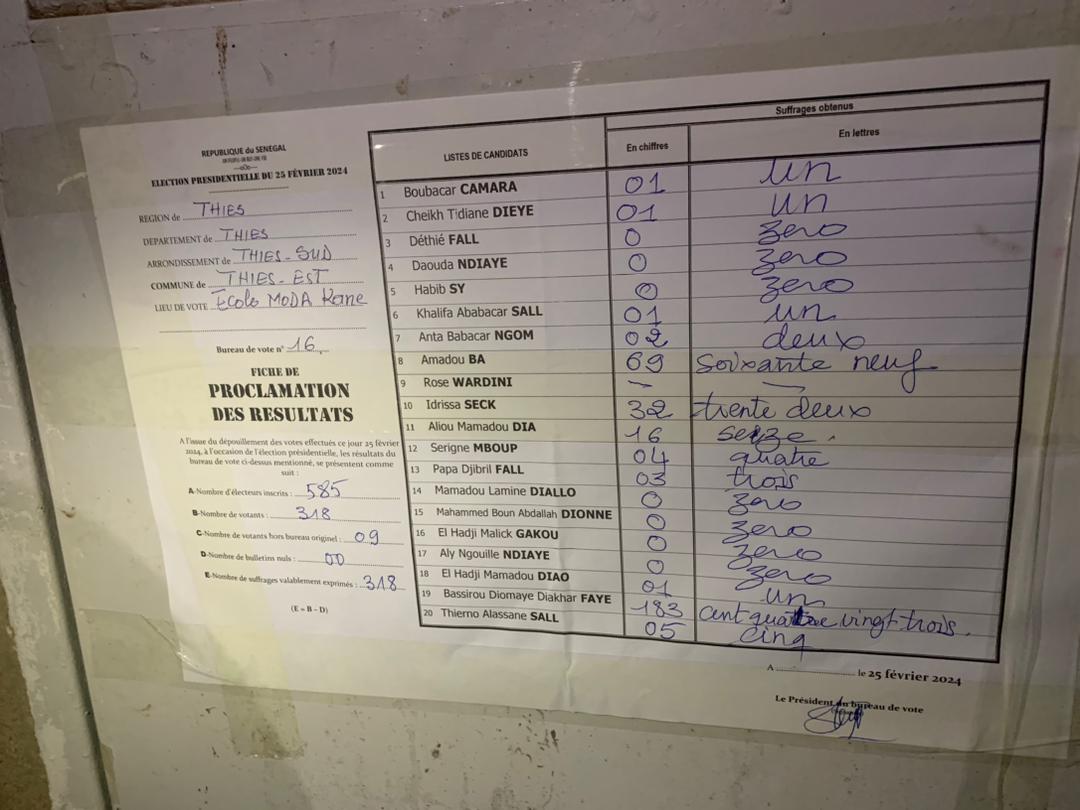 REPUBLIQUE du SENEGAL
UN PEUPLE-UN BUT-UNE FOI
ELECTION PRESIDENTIELLE DU 25 FÉVRIER 2024
REGION de THIES
DEPARTEMENT de THIES
ARRONDISSEMENT de THIES-SUD
COMMUNE de THIES-EST
LIEU DE VOTE Ecole MODA Kane
Bureau de vote n° 16
FICHE DE
PROCLAMATION
DES RESULTATS
A l'issue du dépouillement des votes effectués ce jour 25 février
2024, à l'occasion de l'élection présidentielle, les résultats du
bureau de vote ci-dessus mentionné, se présentent comme
suit :
A-Nombre d'électeurs inscrits : 585
B-Nombre de votants : 318
C-Nombre de votants hors bureau originel : 09
D-Nombre de bulletins nuls : 00
E-Nombre de suffrages valablement exprimés : 318
(E = B - D)
LISTES DE CANDIDATS Suffrages obtenus
En chiffres En lettres
1 Boubacar CAMARA 01 un
2 Cheikh Tidiane DIEYE 01 un
3 Déthié FALL 0 zero
4 Daouda NDIAYE 0 zero
5 Habib SY 0 zero
6 Khalifa Ababacar SALL 01 un
7 Anta Babacar NGOM 02 deux
8 Amadou BA 69 soixante neuf
9 Rose WARDINI — —
10 Idrissa SECK 32 trente deux
11 Aliou Mamadou DIA 16 seize.
12 Serigne MBOUP 04 quatre
13 Papa Djibril FALL 03 trois
14 Mamadou Lamine DIALLO 0 zero
15 Mahammed Boun Abdallah DIONNE 0 zero
16 El Hadji Malick GAKOU 0 zero
17 Aly Ngouille NDIAYE 0 zero
18 El Hadji Mamadou DIAO 01 un
19 Bassirou Diomaye Diakhar FAYE 183 cent quatre vingt trois.
20 Thierno Alassane SALL 05 cinq
A .......... le 25 février 2024
Le Président du bureau de vote